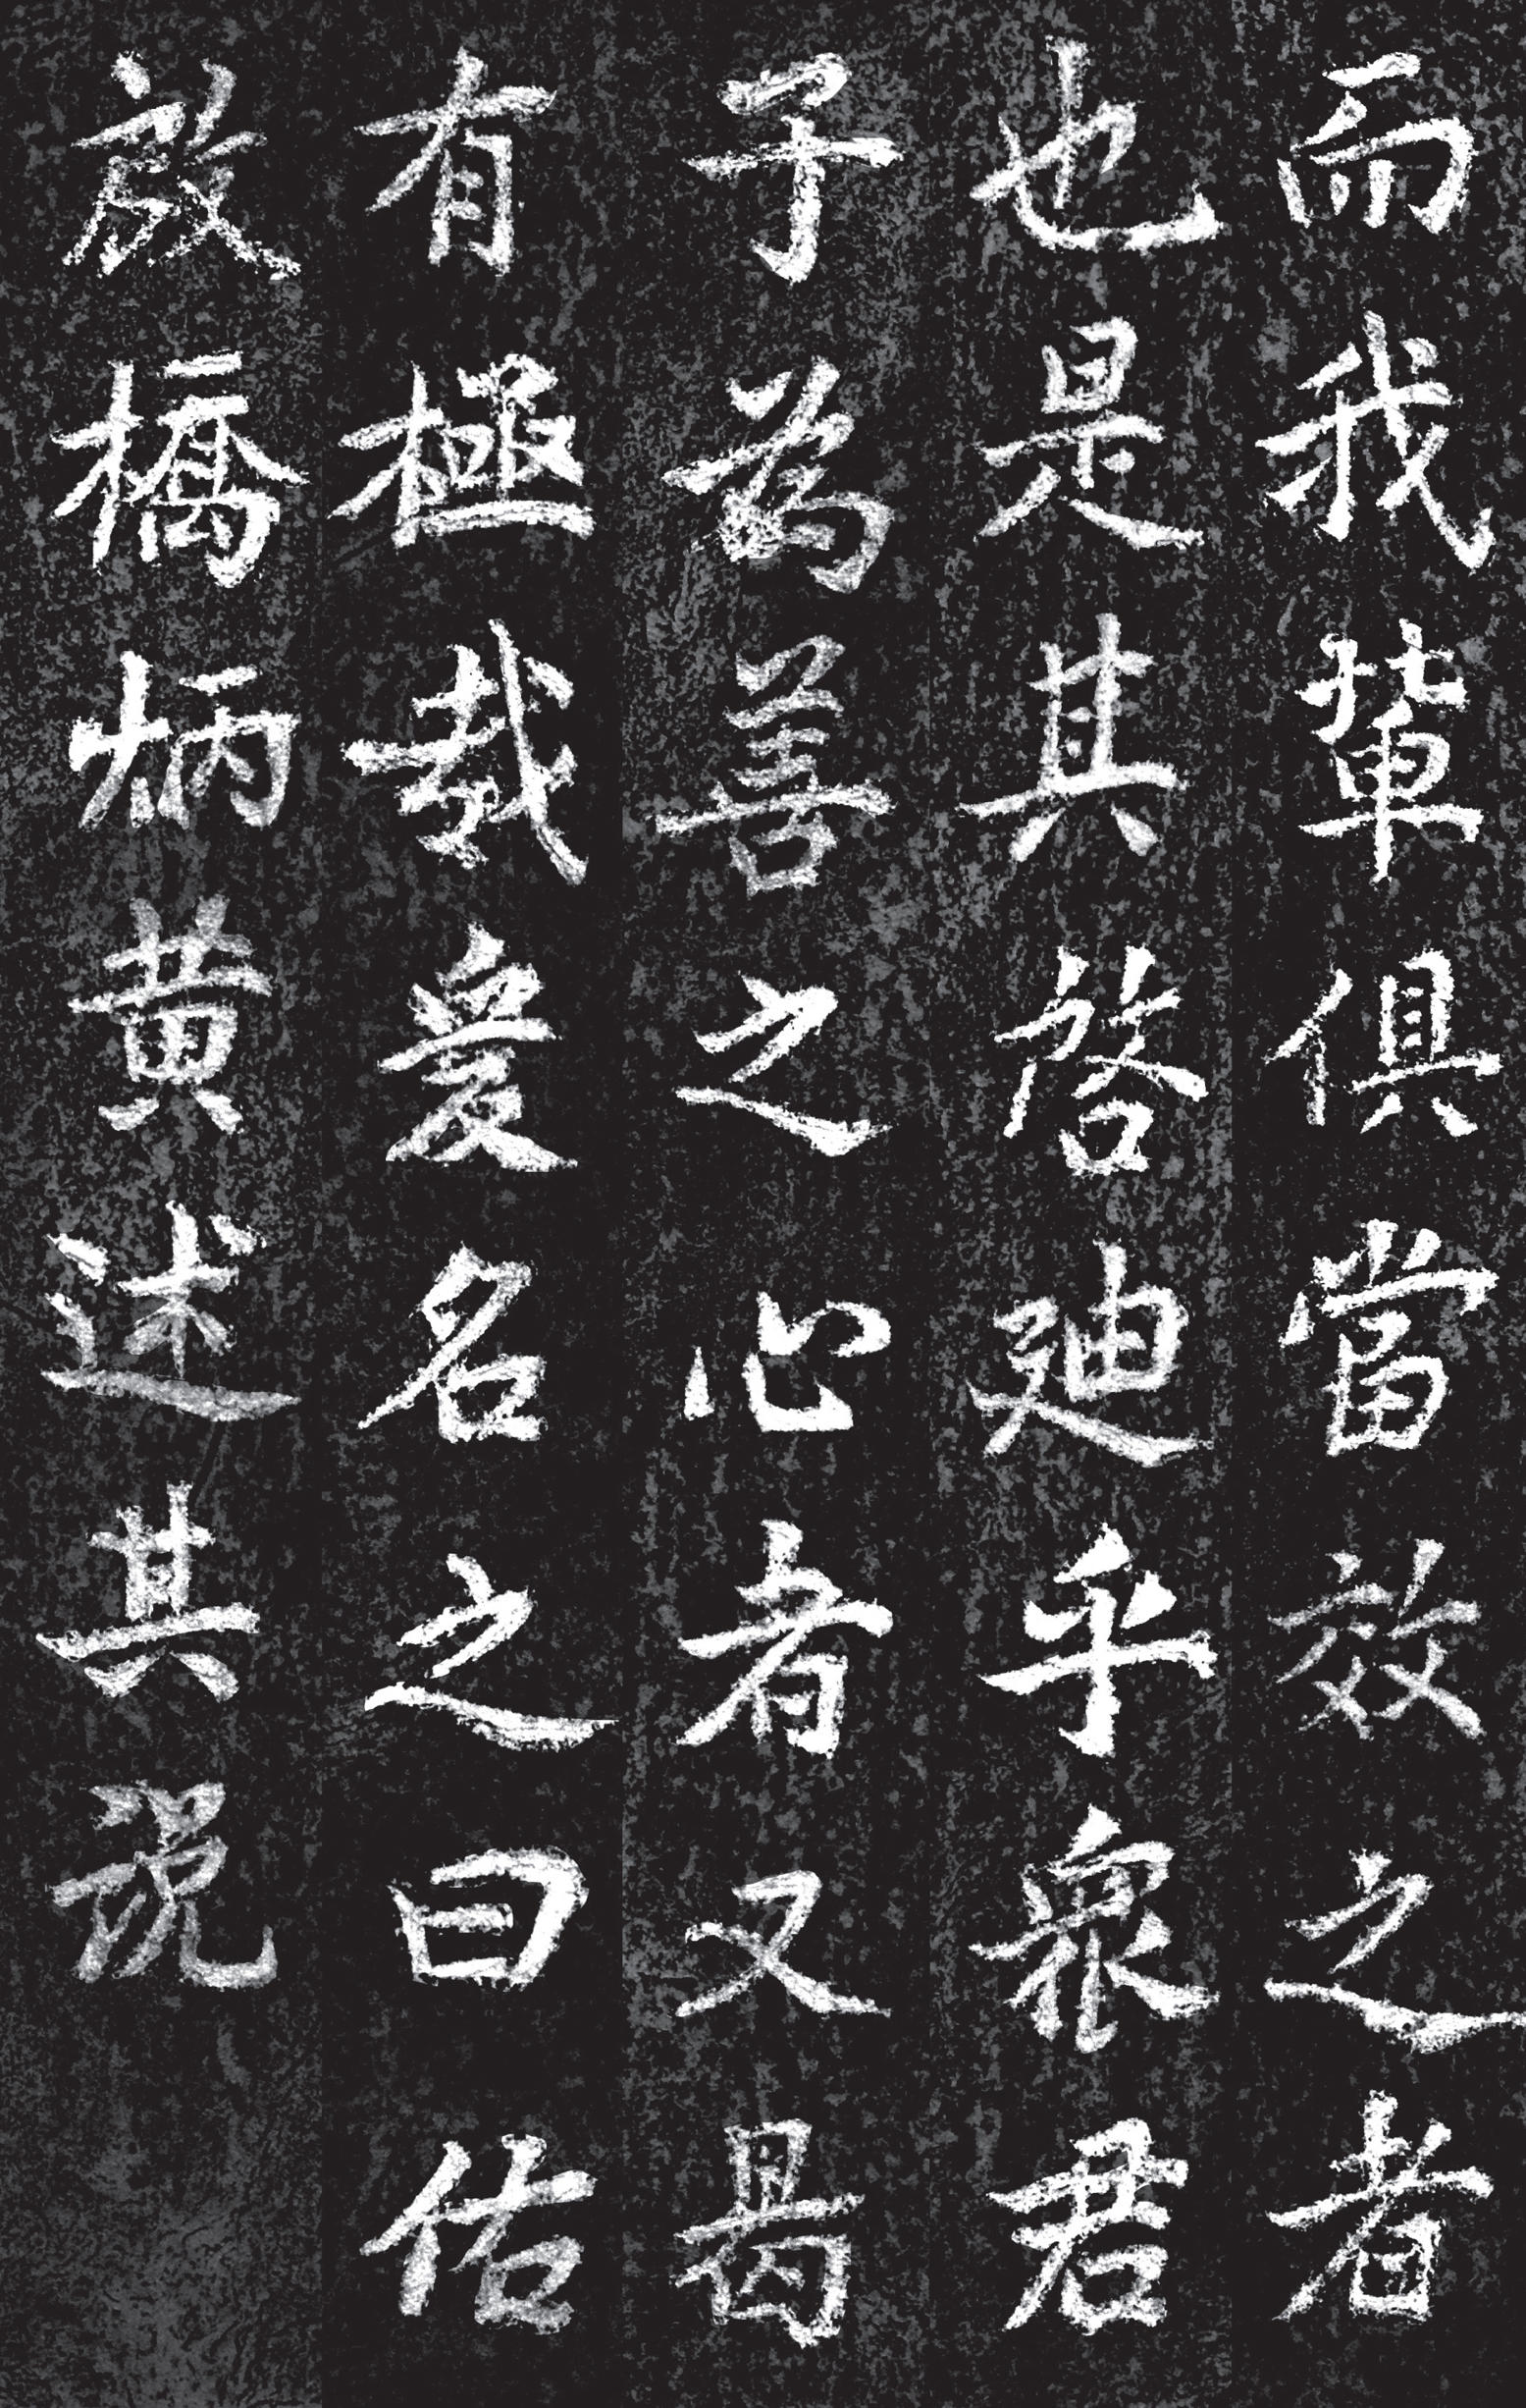 而我輩俱當效之者
也是其啓迪乎衆君
子為善之心者又曷
有極哉爰名之曰佑
啟橋炳黄述其說